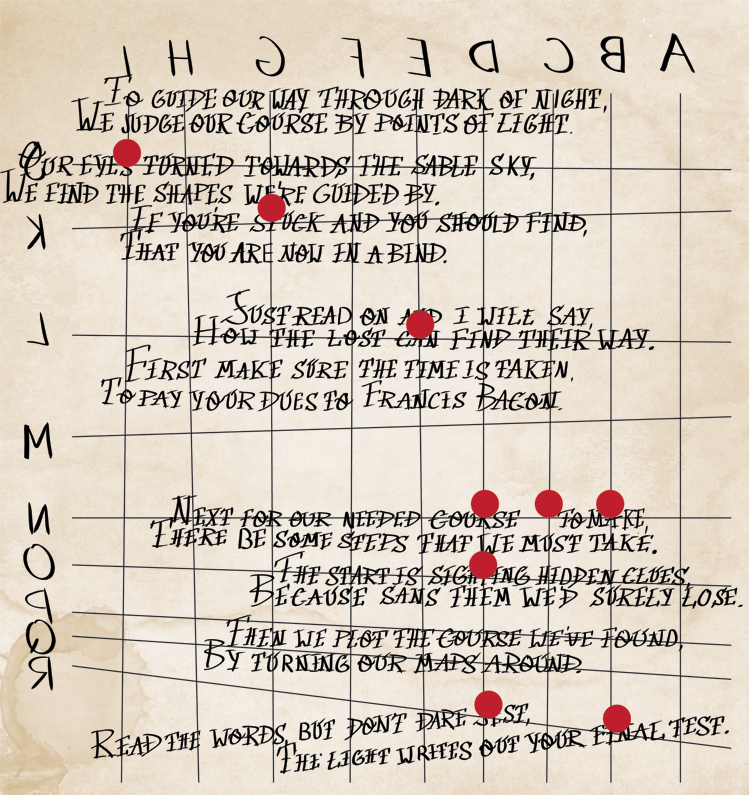 I H G F E D C B A
To guide our way through dark of night,
We judge our course by points of light.
Our eyes turned towards the sable sky,
We find the shapes we're guided by.
K
If you're stuck and you should find,
That you are now in a bind.
L
Just read on and I will say,
How the lost can find their way.
First make sure the time is taken,
To pay your dues to Francis Bacon.
M
N
Next for our needed course to make,
There be some steps that we must take.
O
The start is sighting hidden clues,
Because sans them we'd surely lose.
P
Q
Then we plot the course we've found,
By turning our maps around.
R
Read the words, but don't dare jest,
The light writes out your final test.